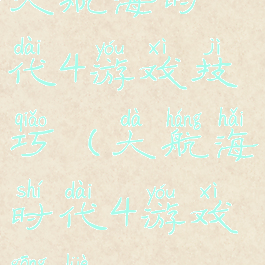 大航海时
dài yóu xì jì
代4游戏技
qiǎo dà háng hǎi
巧(大航海
shí dài yóu xì
时代4游戏